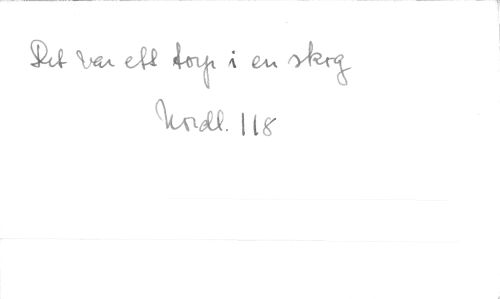 Det var ett torp i en skog
Nordl. 118